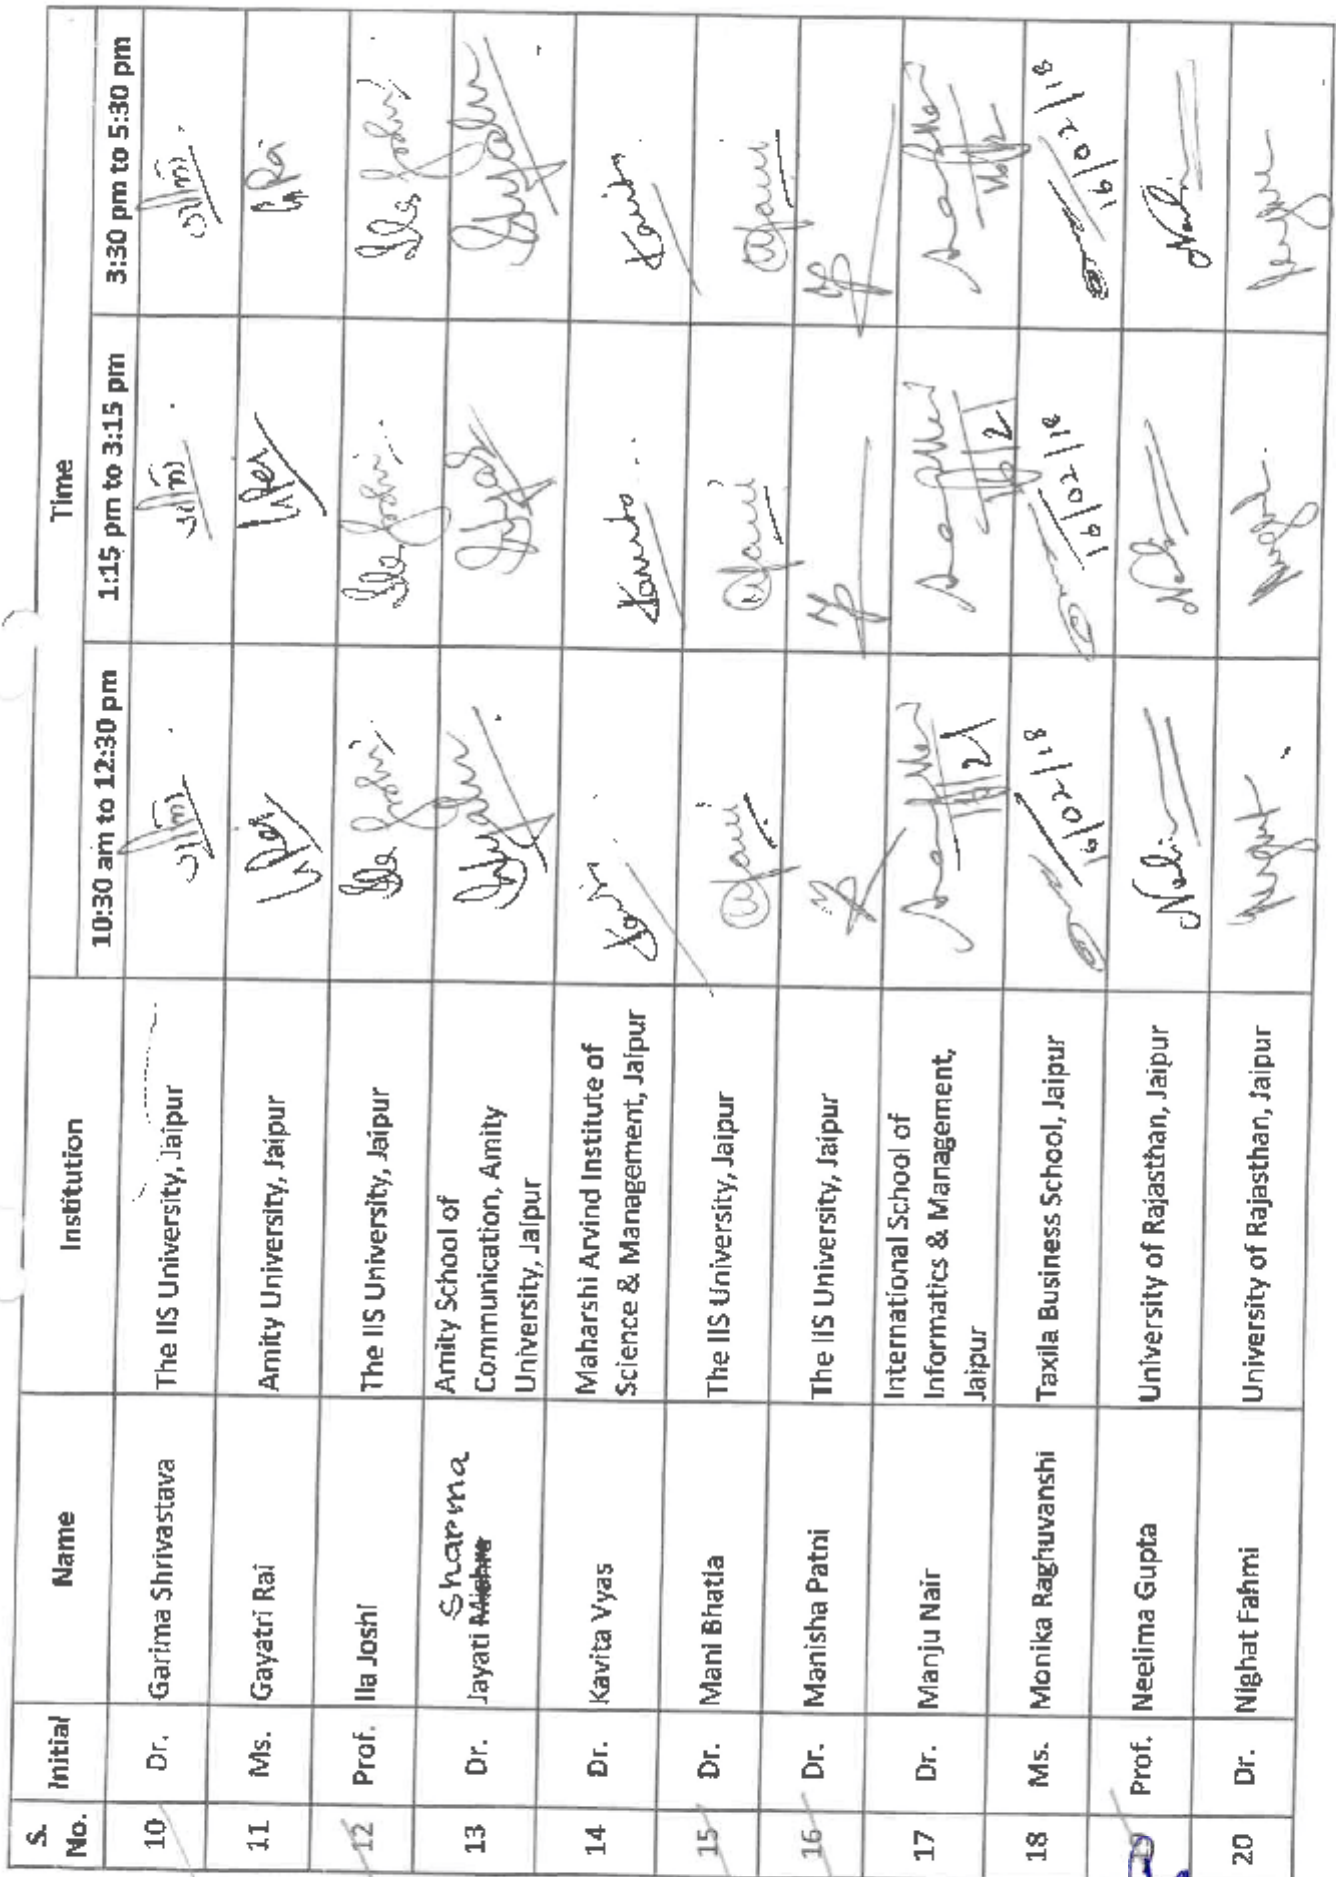 S. No. Initial Name Institution Time
10:30 am to 12:30 pm 1:15 pm to 3:15 pm 3:30 pm to 5:30 pm
10 Dr. Garima Shrivastava The IIS University, Jaipur
11 Ms. Gayatri Rai Amity University, Jaipur GRai
12 Prof. Ila Joshi The IIS University, Jaipur Ila Joshi Ila Joshi Ila Joshi
Sharma
13 Dr. Jayati Mishra Amity School of
Communication, Amity
University, Jaipur
14 Dr. Kavita Vyas Maharshi Arvind Institute of
Science & Management, Jaipur Kavita
15 Dr. Mani Bhatia The IIS University, Jaipur Mani Mani Mani
16 Dr. Manisha Patni The IIS University, Jaipur
17 Dr. Manju Nair International School of
Informatics & Management,
Jaipur
18 Ms. Monika Raghuvanshi Taxila Business School, Jaipur 16/02/18 16/02/18 16/02/18
19 Prof. Neelima Gupta University of Rajasthan, Jaipur
20 Dr. Nighat Fahmi University of Rajasthan, Jaipur